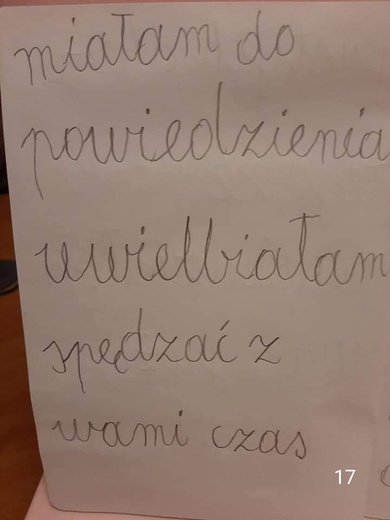 miałam do
powiedzienia
uwielbiałam
spędzać z
wami czas
17